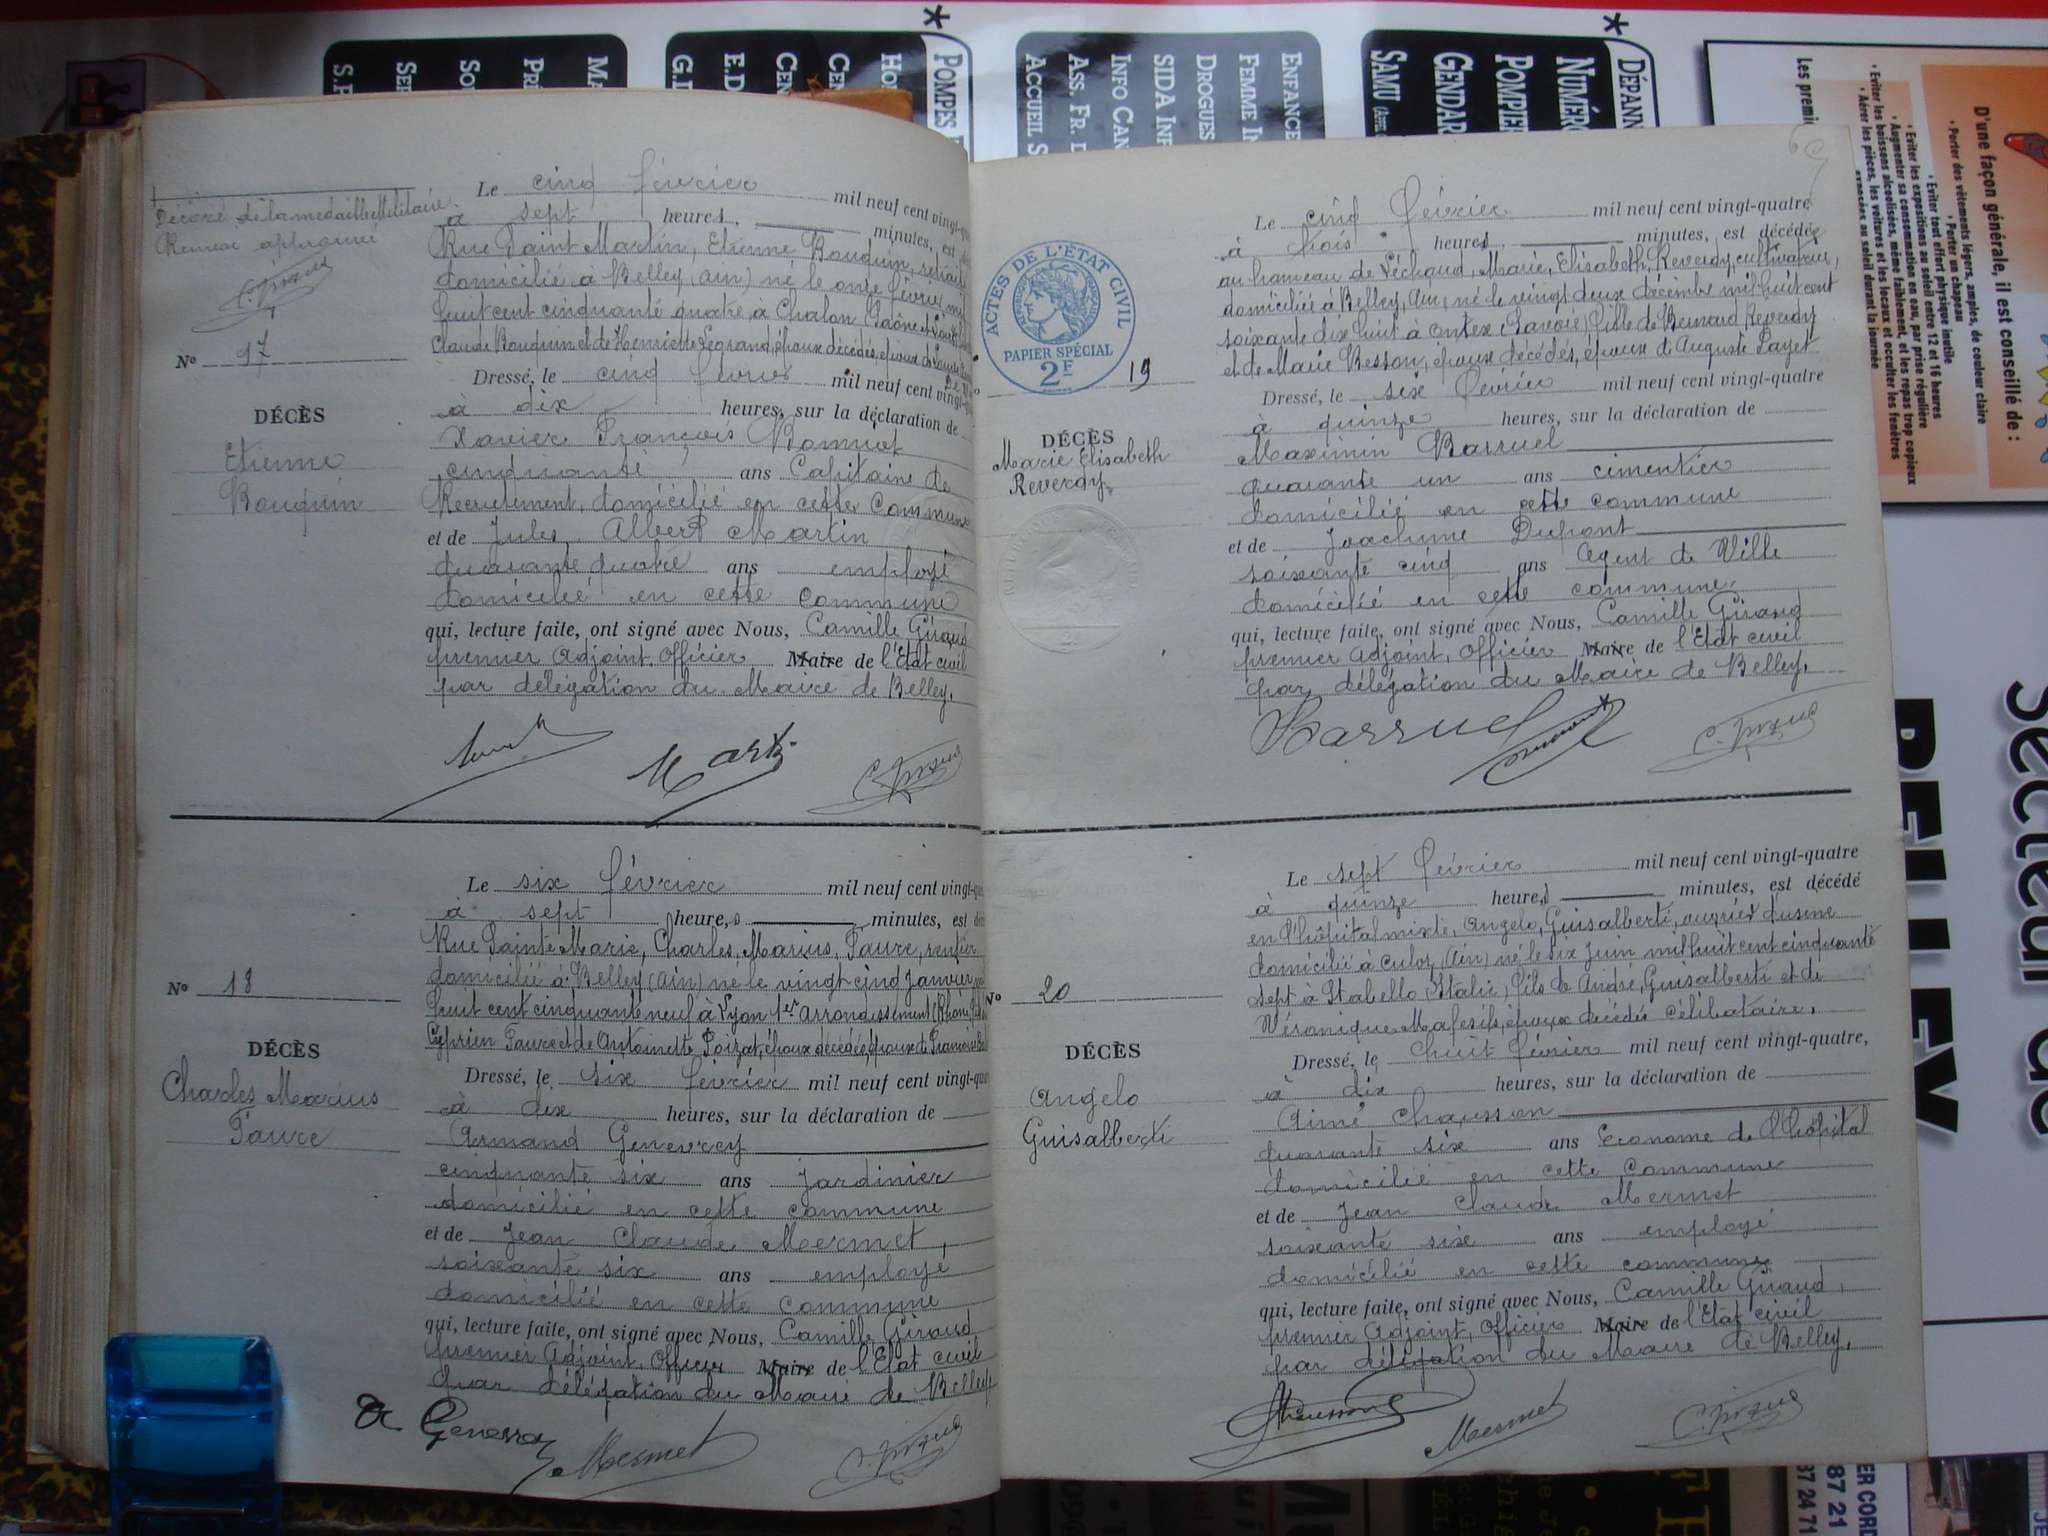 Décoré de la médaille Militaire
Renvoi approuvé
C. Giraud
Le cinq février mil neuf cent vingt-qua
à sept heures minutes, est
Rue Saint Martin, Etienne Bouquin, retraité
domicilié à Belley (Ain) né le onze février mil
huit cent cinquante quatre à Chalon (Saône et Loire)
Claude Bouquin et de Henriette Legrand, époux décédés, époux
No 17
Dressé, le cinq février mil neuf cent vingt-qua
à dix heures, sur la déclaration de
Xavier François Bonnot
cinquante ans Capitaine de
Recrutement, domicilié en cette commune
et de Jules Albert Martin
quarante quatre ans employé
domicilié en cette commune
qui, lecture faite, ont signé avec Nous, Camille Giraud
premier Adjoint, Officier Maire de l'Etat civil
par délégation du Maire de Belley.
DÉCÈS
Etienne
Bouquin
Marti
C. Giraud
Le six février mil neuf cent vingt-qua
à sept heures minutes, est
Rue Sainte Marie, Charles, Marius, Faure, rentier
domicilié à Belley (Ain) né le vingt cinq Janvier
huit cent cinquante neuf à Lyon 1er arrondissement (Rhône)
Cyprien Faure et de Antoinette Poizat, époux décédés, époux de
No 18
Dressé, le six février mil neuf cent vingt-qua
à dix heures, sur la déclaration de
Armand Genevrey
cinquante six ans Jardinier
domicilié en cette commune
et de Jean Claude Mermet,
soixante six ans employé
domicilié en cette commune
qui, lecture faite, ont signé avec Nous, Camille Giraud
premier Adjoint, Officier Maire de l'Etat civil
par délégation du Maire de Belley
DÉCÈS
Charles Marius
Faure
Mermet
C. Giraud
Le cinq février mil neuf cent vingt-quatre
à trois heures minutes, est décédée
au hameau de Péchaud, Marie, Elisabeth, Reverdy, cultivateur,
domiciliée à Belley, Ain, né le vingt deux décembre mil huit cent
soixante dix huit à Ontex (Savoie) fille de Bernard Reverdy
et de Marie Besson, époux décédés, époux de Auguste Payet
ACTES DE L'ÉTAT CIVIL
PAPIER SPÉCIAL
2F
19
Dressé, le six février mil neuf cent vingt-quatre
à quinze heures, sur la déclaration de
Maximin Barruel
quarante un ans cimentier
domicilié en cette commune
et de Joachime Dupont
soixante cinq ans agent de Ville
domicilié en cette commune,
qui, lecture faite, ont signé avec Nous, Camille Giraud
premier Adjoint, Officier Maire de l'Etat civil
par délégation du Maire de Belley.
DÉCÈS
Marie Elisabeth
Reverdy
Barruel
C. Giraud
Le sept février mil neuf cent vingt-quatre
à quinze heures minutes, est décédé
en l'hôpital mixte, Angelo, Guisalberti, ouvrier d'usine
domicilié à Culoz, (Ain) né le six Juin mil huit cent cinquante
sept à Stabello Italie, fils de André, Guisalberti et de
Véronique époux décédés célibataire.
No 20
Dressé, le huit février mil neuf cent vingt-quatre,
à dix heures, sur la déclaration de
Aimé Chausson
quarante six ans Econome de l'hôpital
domicilié en cette commune
et de Jean Claude Mermet
soixante six ans employé
domicilié en cette commune
qui, lecture faite, ont signé avec Nous, Camille Giraud,
premier Adjoint, Officier Maire de l'Etat civil
par délégation du Maire de Belley.
DÉCÈS
Angelo
Guisalberti
Chausson
Mermet
C. Giraud
POMPES
ACCUEIL S
ASS. FR. D
INFO CAN
SIDA INF
DROGUES
FEMME IN
ENFANCE
DÉPANN
NUMÉRO
POMPIER
GENDAR
SAMU
D'une façon générale, il est conseillé de :
• Porter des vêtements légers, amples, de couleur claire
• Porter un chapeau
• Eviter tout effort physique inutile
• Eviter les expositions au soleil entre 12 et 16 heures
• Augmenter sa consommation en eau, par prise régulière
• Eviter les boissons alcoolisées, même faiblement, et les repas trop copieux
• Aérer les pièces, les voitures et les locaux et occulter les fenêtres
exposées au soleil durant la journée
Les premi
Secteur de
BELLEY